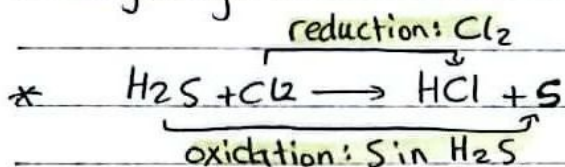 reduction: Cl2
* H2S + Cl2 → HCl + S
oxidation: S in H2S